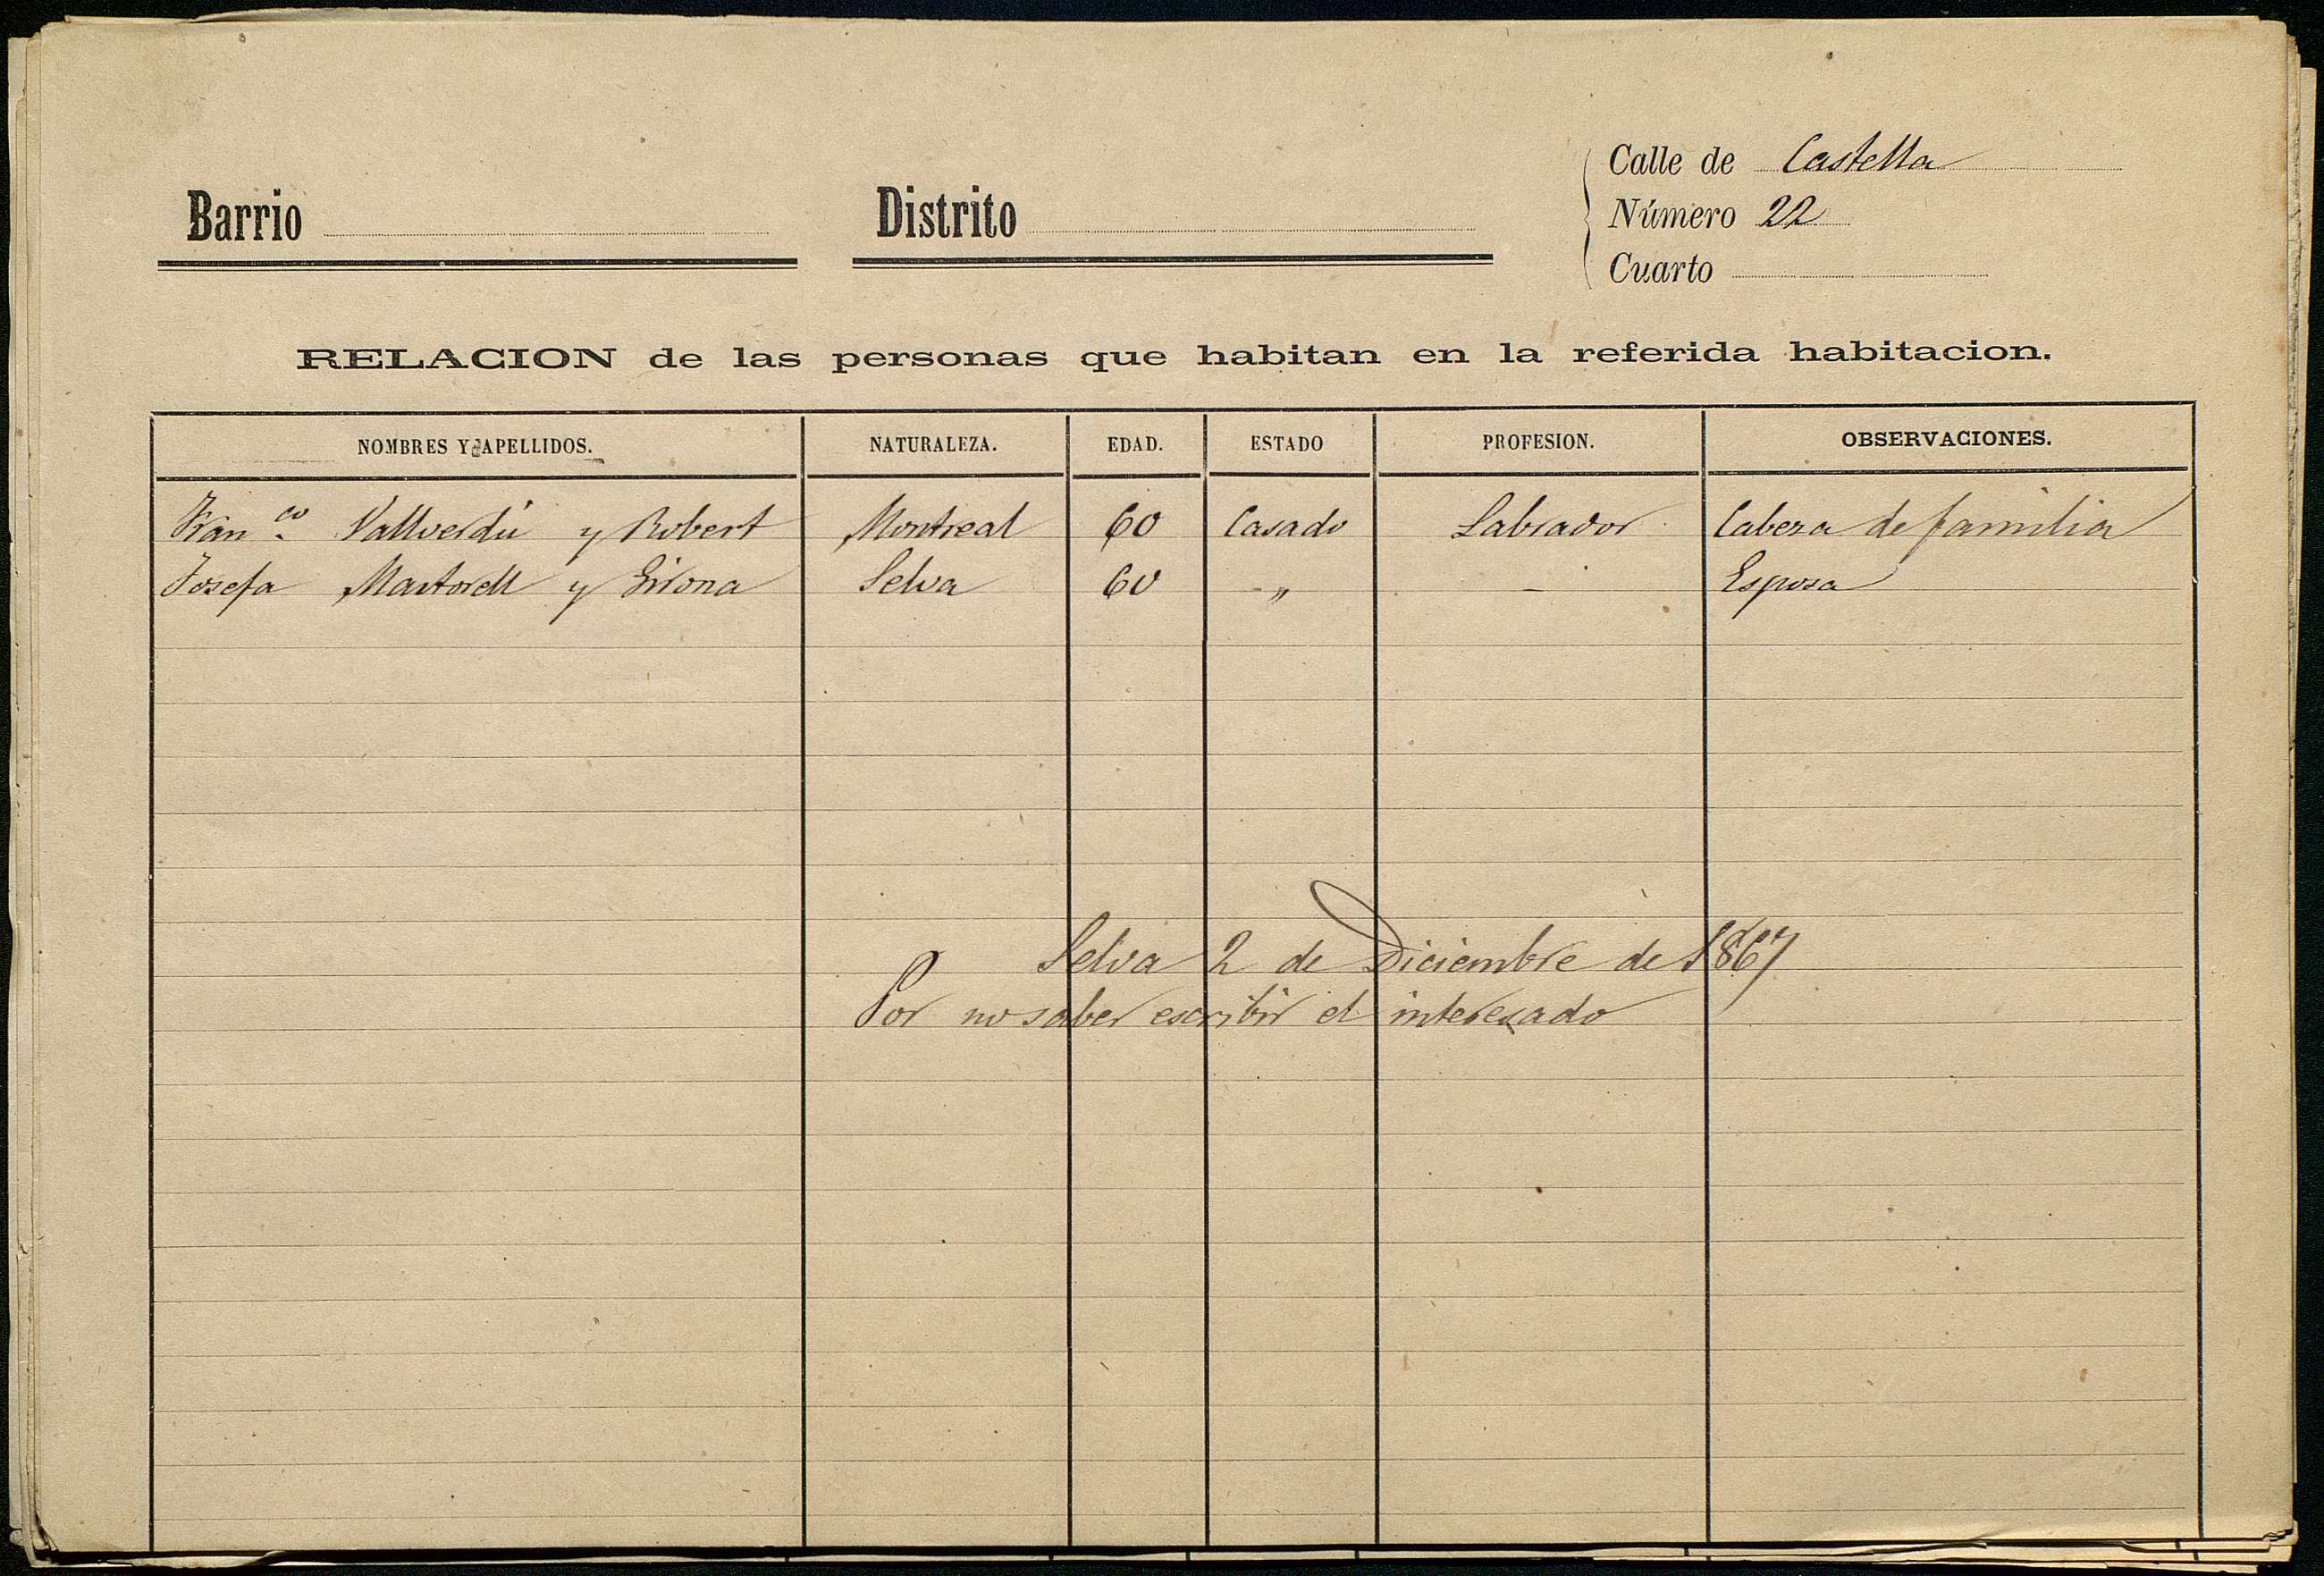 Calle de Castella
Barrio Distrito Número 22
Cuarto
RELACION de las personas que habitan en la referida habitacion.
NOMBRES Y APELLIDOS. NATURALEZA. EDAD. ESTADO PROFESION. OBSERVACIONES.
Fran.co Vallverdú y Robert Montreal 60 Casado Labrador Cabeza de familia
Josefa Martorell y Girona Selva 60 - „ - Esposa
Selva 2 de Diciembre de 1867
Por no saber escribir el interesado